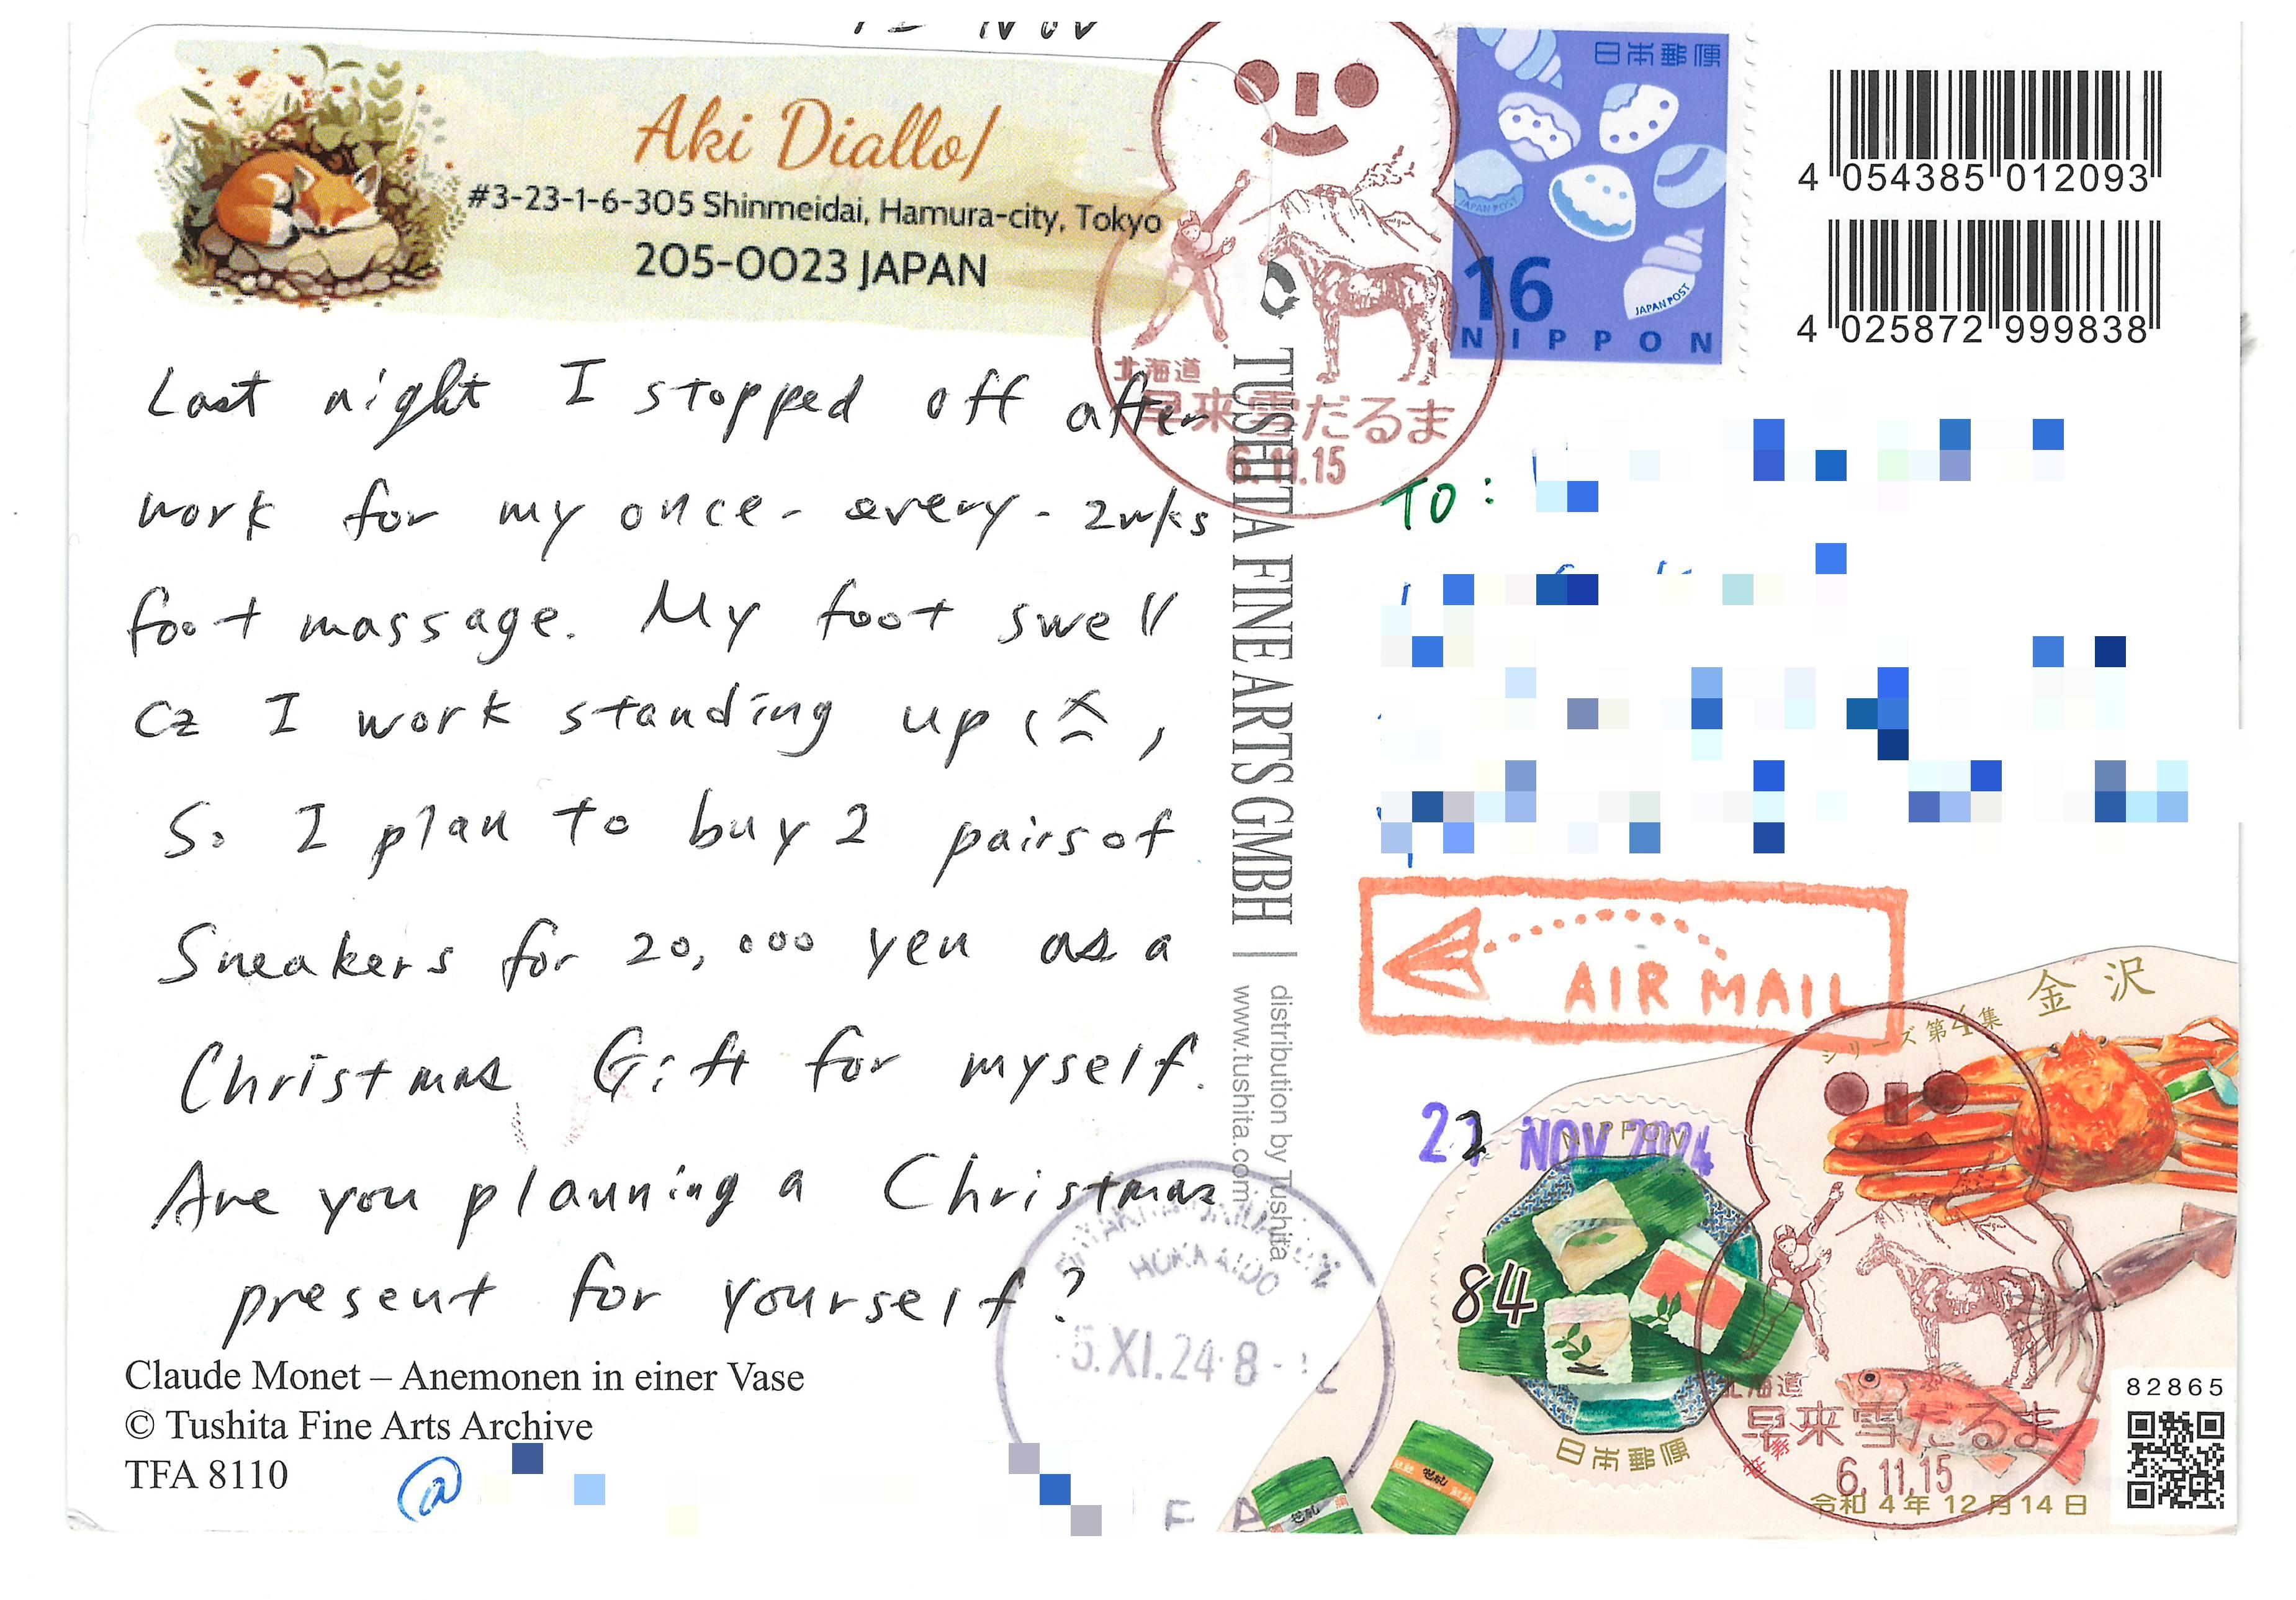 Nov
Aki Diallo/
#3-23-1-6-305 Shinmeidai, Hamura-city, Tokyo
205-0023 JAPAN
Last night I stopped off after
work for my once-every-2wks
foot massage. My foot swell
cz I work standing up
So I plan to buy 2 pairs of
Sneakers for 20,000 yen as a
Christmas Gift for myself.
Are you planning a Christmas
present for yourself?
Claude Monet – Anemonen in einer Vase
© Tushita Fine Arts Archive
TFA 8110
@
TUSHITA FINE ARTS GMBH | distribution by Tushita
www.tushita.com
北海道
早来雪だるま
6.11.15
日本郵便
JAPAN POST
JAPAN POST
16
NIPPON
4 054385 012093
4 025872 999838
TO:
AIR MAIL
シリーズ第4集 金沢
NOV 2024
NIPPON
84
日本郵便
HOKKAIDO
5.XI.24 8-
北海道
早来雪だるま
6.11.15
令和4年12月14日
82865